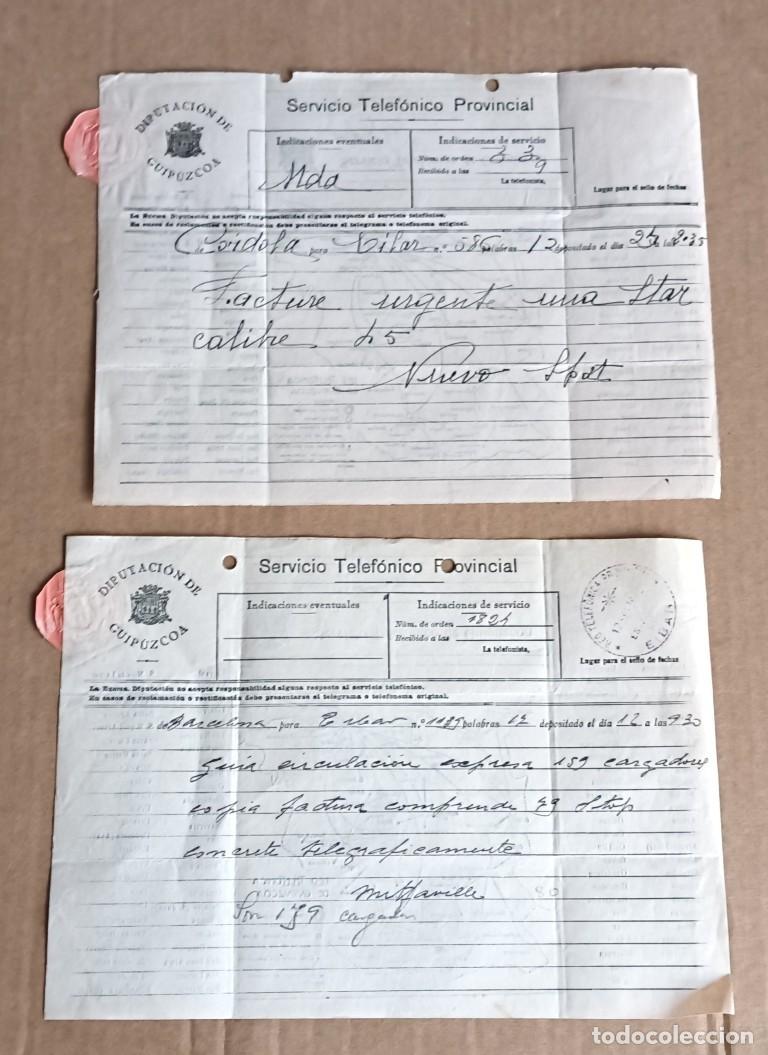 DIPUTACIÓN DE
GUIPÚZCOA
Servicio Telefónico Provincial
Indicaciones eventuales
Mda
Indicaciones de servicio
Núm. de orden 339
Recibido a las
La telefonista,
Lugar para el sello de fechas
La Excma. Diputación no acepta responsabilidad alguna respecto al servicio telefónico.
En casos de reclamación o rectificación debe presentarse el telegrama o telefonema original.
de Córdoba para Eibar n.º 586 palabras 12 depositado el día 24 a las 8.35
Facture urgente una Star
calibre 45
Nuevo Spot
DIPUTACIÓN DE
GUIPÚZCOA
Servicio Telefónico Provincial
Indicaciones eventuales
Indicaciones de servicio
Núm. de orden 1824
Recibido a las
La telefonista,
EIBAR
Lugar para el sello de fechas
La Excma. Diputación no acepta responsabilidad alguna respecto al servicio telefónico.
En casos de reclamación o rectificación debe presentarse el telegrama o telefonema original.
de Barcelona para Eibar n.º 1185 palabras 12 depositado el día 12 a las 9.30
Guia circulación expresa 159 cargadores
copia factura comprende 79 Stop
concrete telegraficamente
Son 179 cargador
todocoleccion